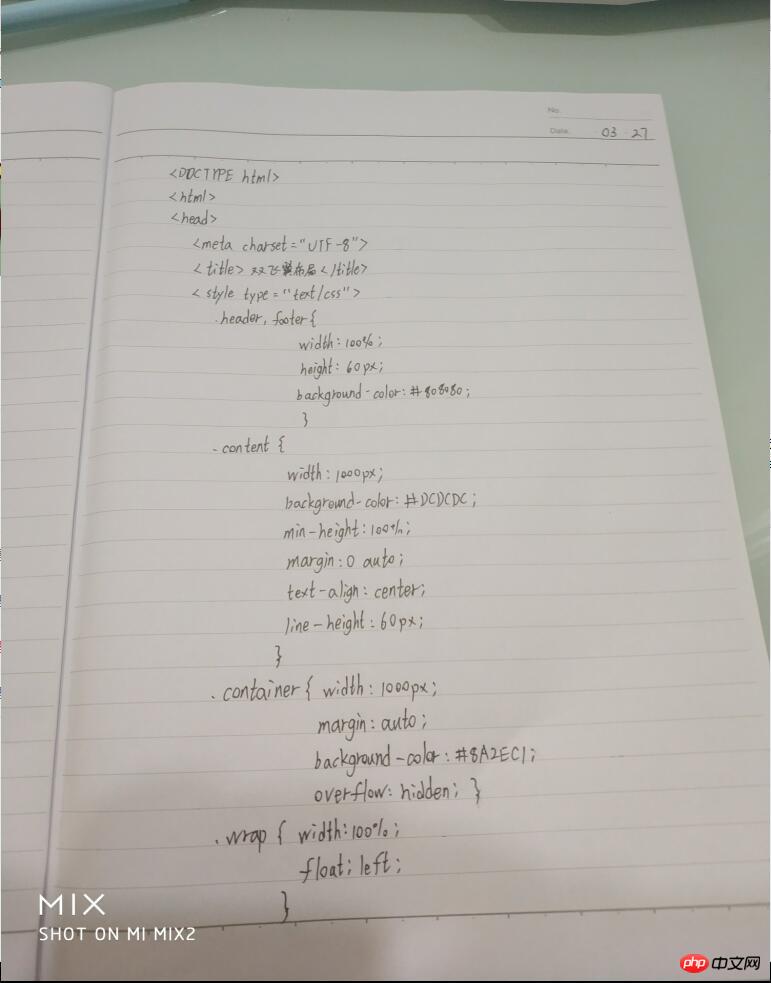 No.
Date. 03 27
<DOCTYPE html>
<html>
<head>
<meta charset="UTF-8">
<title>双飞翼布局</title>
<style type="text/css">
.header, footer{
width: 100%;
height: 60px;
background-color: #808080;
}
.content {
width: 1000px;
background-color: #DCDCDC;
min-height: 100%;
margin: 0 auto;
text-align: center;
line-height: 60px;
}
.container{ width: 1000px;
margin: auto;
background-color: #8A2EC1;
overflow: hidden; }
.wrap { width: 100%;
float; left;
}
MIX
SHOT ON MI MIX2
php 中文网